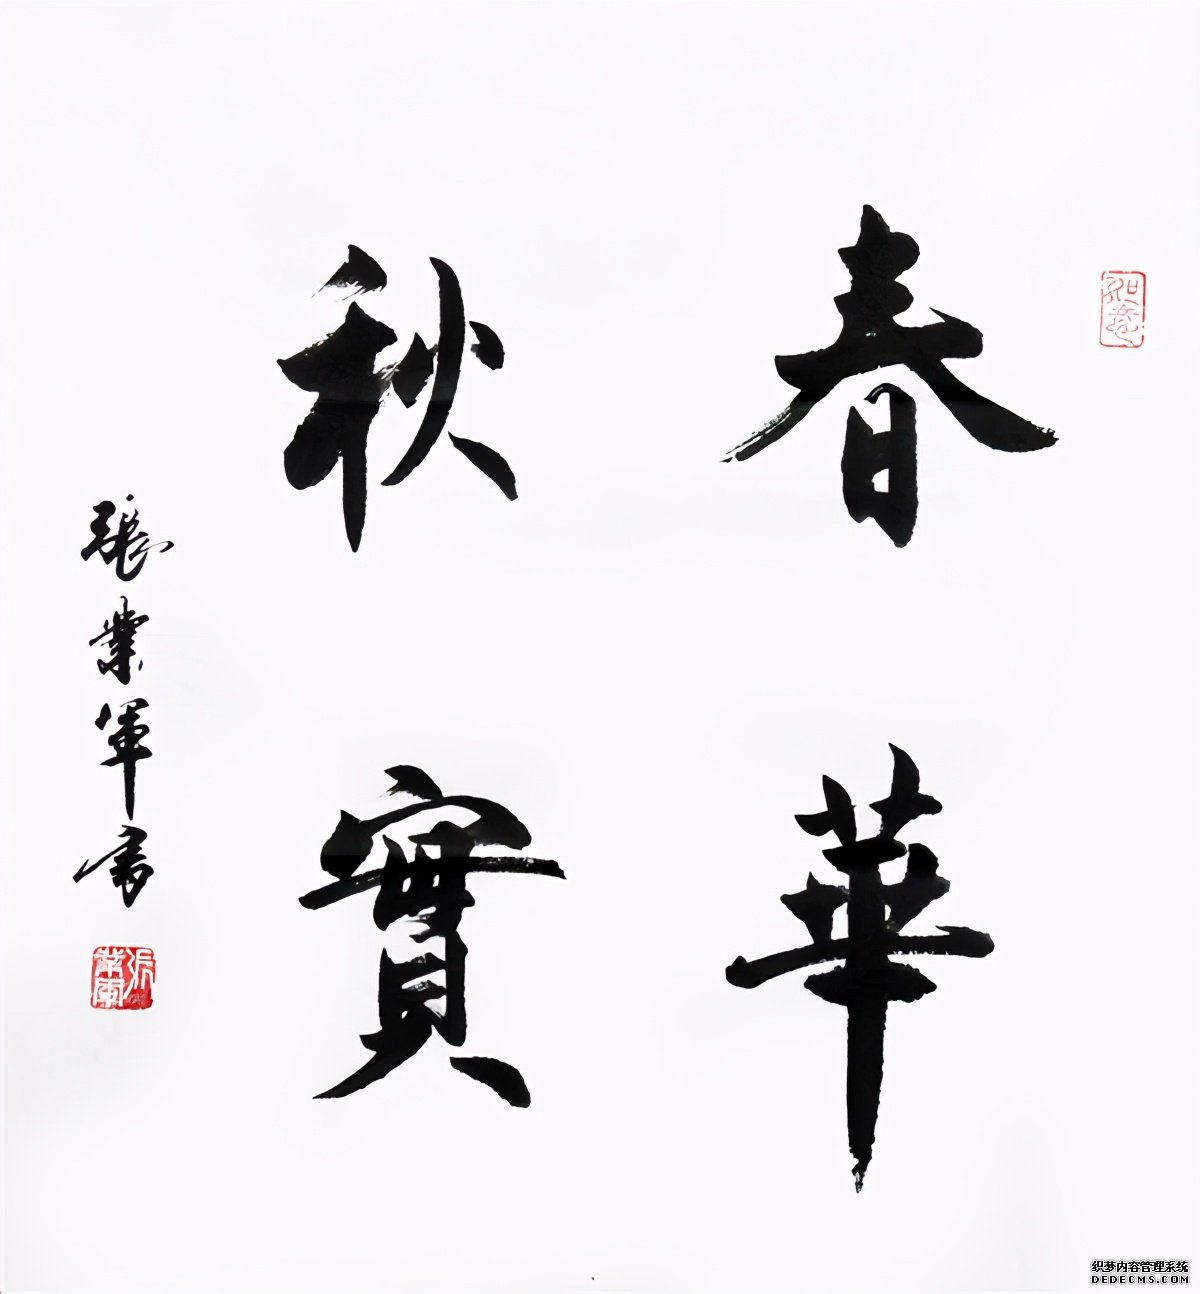 春華
秋實
張業軍書
如意
張業軍
织梦内容管理系统
DEDECMS.COM